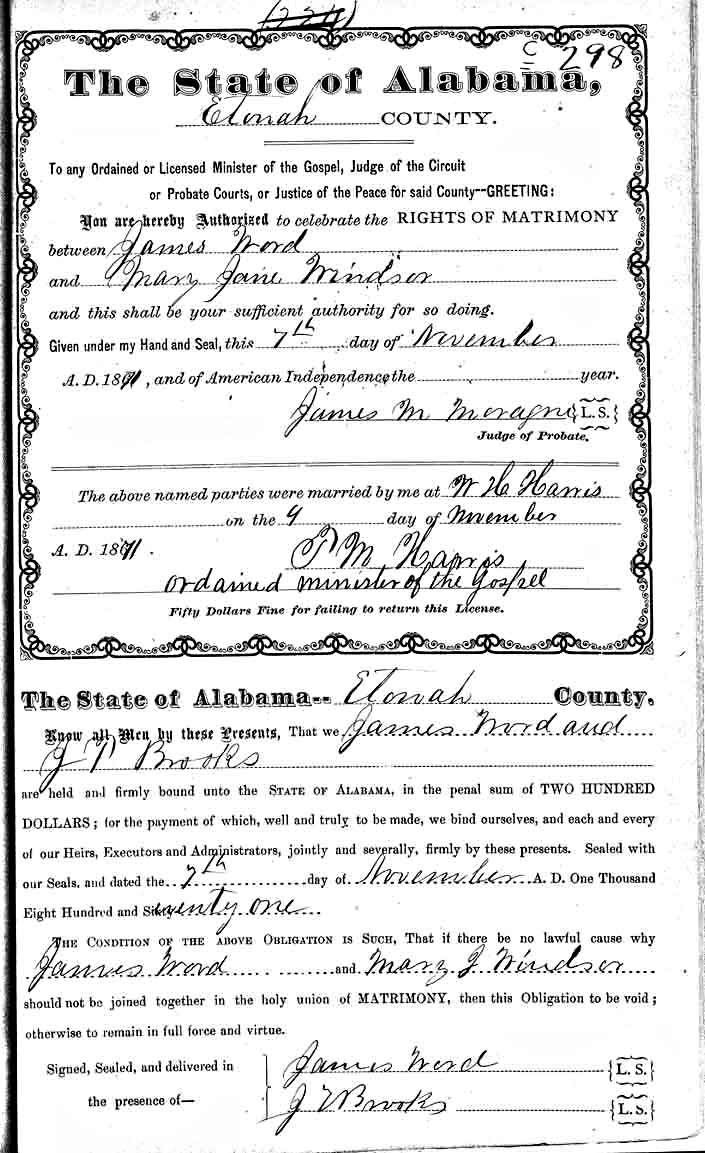 (224)
C 298
The State of Alabama,
Etowah COUNTY.
To any Ordained or Licensed Minister of the Gospel, Judge of the Circuit
or Probate Courts, or Justice of the Peace for said County--GREETING:
You are hereby Authorized to celebrate the RIGHTS OF MATRIMONY
between James Word
and Mary Jane Windsor
and this shall be your sufficient authority for so doing.
Given under my Hand and Seal, this 7th day of November
A. D. 1871, and of American Independence the year.
James M Moragne {L.S.}
Judge of Probate.
The above named parties were married by me at W H Harris
on the 9 day of November
A. D. 1871.
P M Harris
ordained minister of the Gospel
Fifty Dollars Fine for failing to return this License.
The State of Alabama-- Etowah County.
Know all Men by these Presents, That we James Word and
J T Brooks
are held and firmly bound unto the STATE OF ALABAMA, in the penal sum of TWO HUNDRED
DOLLARS; for the payment of which, well and truly to be made, we bind ourselves, and each and every
of our Heirs, Executors and Administrators, jointly and severally, firmly by these presents. Sealed with
our Seals, and dated the 7th day of November A. D. One Thousand
Eight Hundred and Seventy one
THE CONDITION OF THE ABOVE OBLIGATION IS SUCH, That if there be no lawful cause why
James Word and Mary J Windsor
should not be joined together in the holy union of MATRIMONY, then this Obligation to be void;
otherwise to remain in full force and virtue.
Signed, Sealed, and delivered in James Word {L. S.}
the presence of— J T Brooks {L. S.}